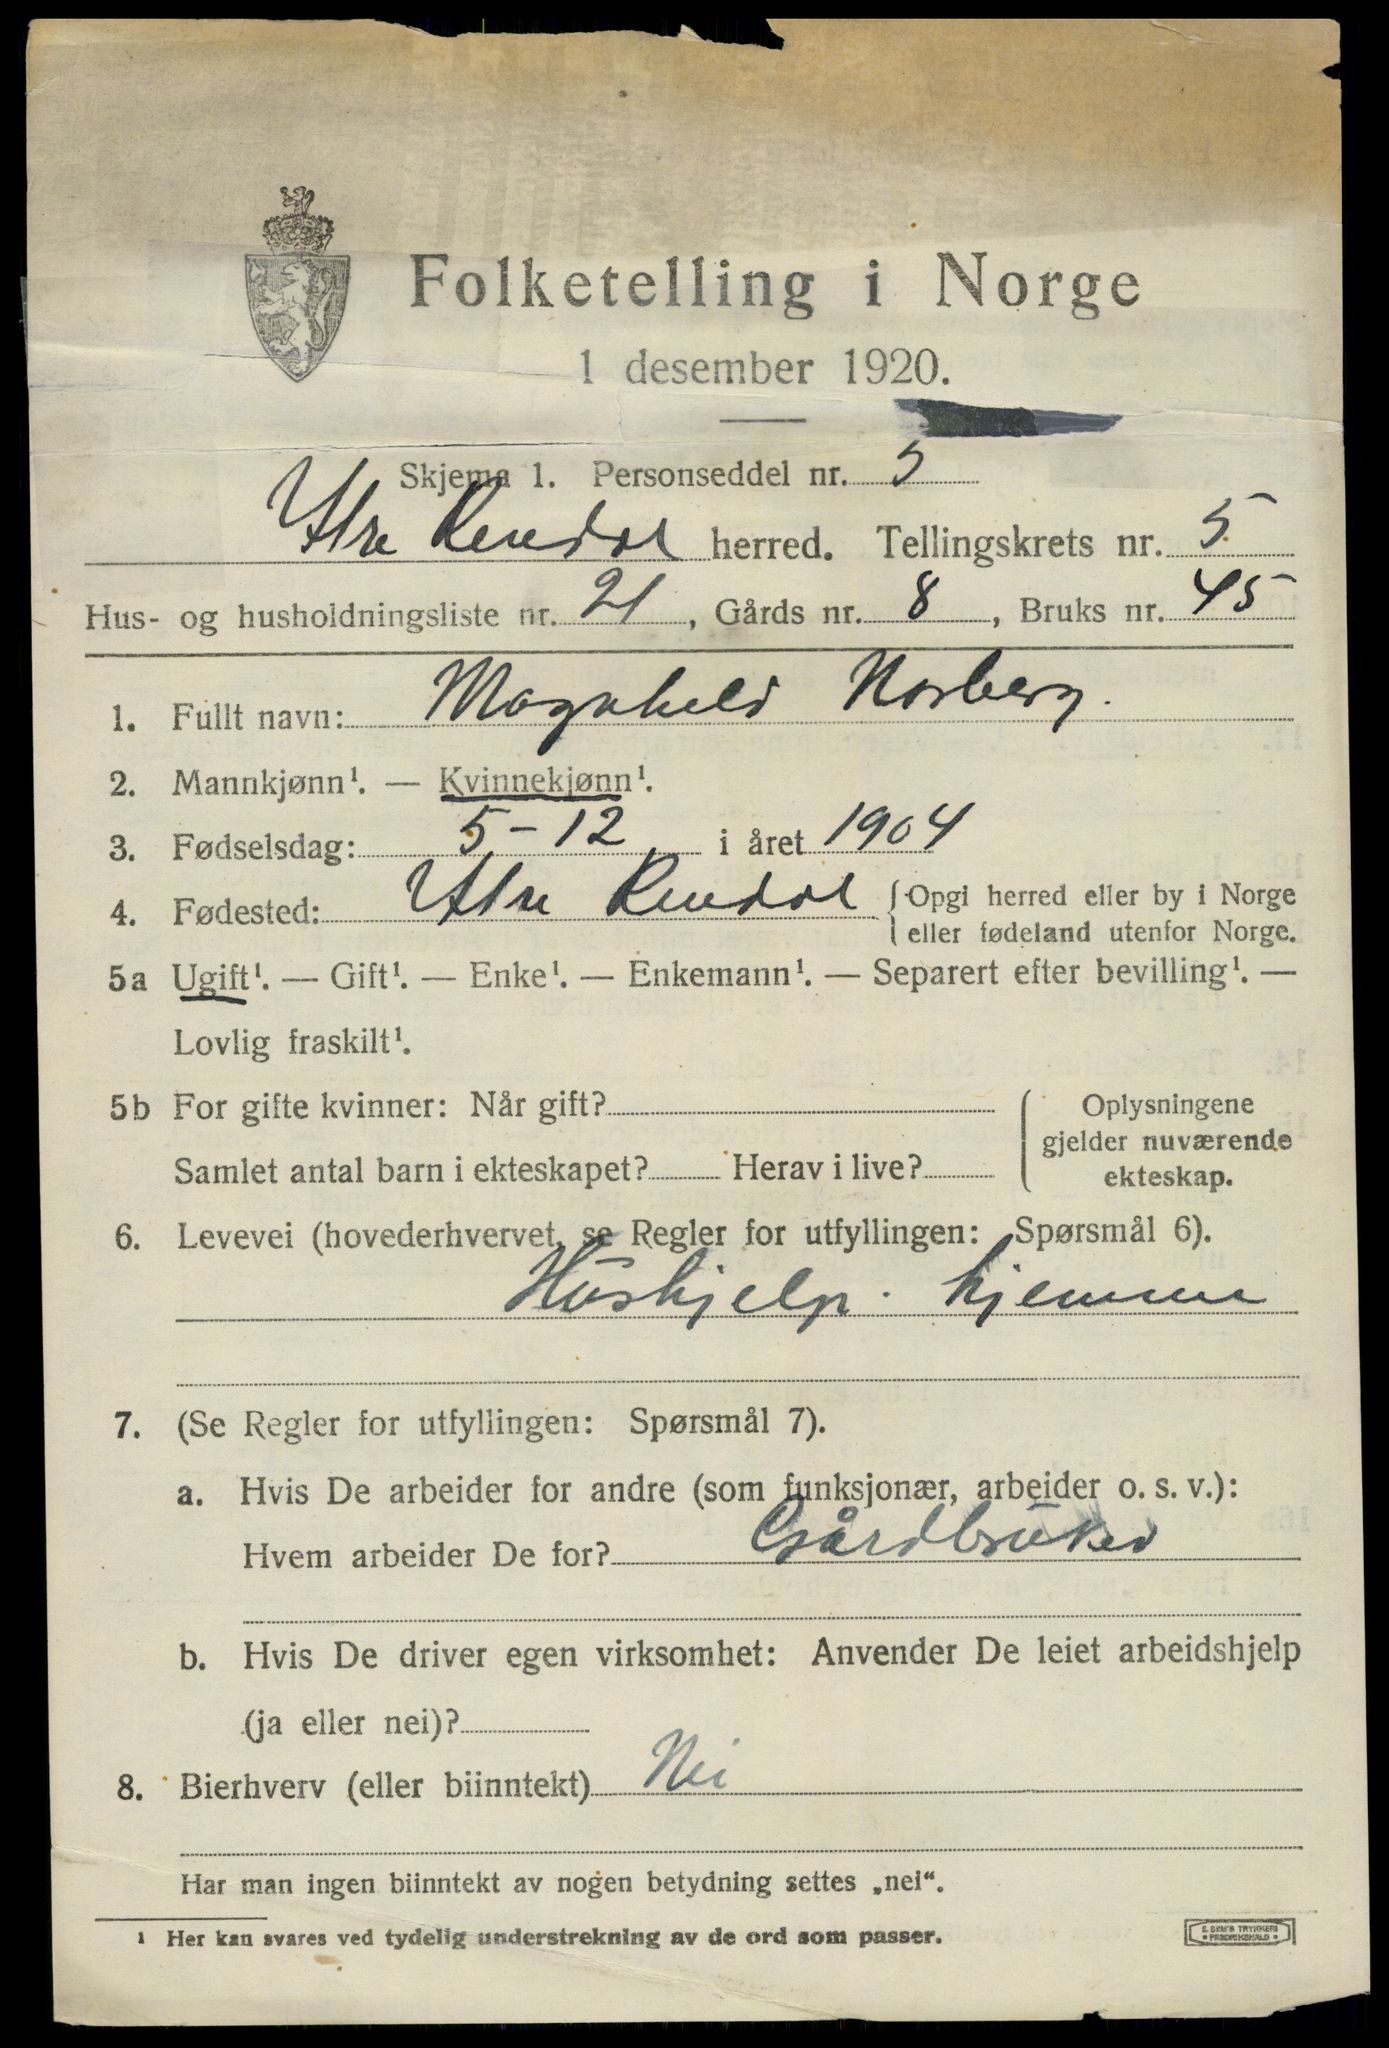 Folketelling i Norge
1 desember 1920.
Skjema 1. Personseddel nr. 5
Ytre Rendal herred. Tellingskrets nr. 5
Hus- og husholdningsliste nr. 21, Gårds nr. 8, Bruks nr. 45
1. Fullt navn: Magnhild Norberg.
2. Mannkjønn¹. — Kvinnekjønn¹.
3. Fødselsdag: 5-12 i året 1904
4. Fødested: Ytre Rendal {Opgi herred eller by i Norge
eller fødeland utenfor Norge.
5a Ugift¹. — Gift¹. — Enke¹. — Enkemann¹. — Separert efter bevilling¹. —
Lovlig fraskilt¹.
5b For gifte kvinner: Når gift? { Oplysningene
gjelder nuværende
Samlet antal barn i ekteskapet? Herav i live? ekteskap.
6. Levevei (hovederhvervet, se Regler for utfyllingen: Spørsmål 6).
Húshjelp. hjemme
7. (Se Regler for utfyllingen: Spørsmål 7).
a. Hvis De arbeider for andre (som funksjonær, arbeider o. s. v.):
Hvem arbeider De for? Gårdbruker
b. Hvis De driver egen virksomhet: Anvender De leiet arbeidshjelp
(ja eller nei)?
8. Bierhverv (eller biinntekt) Nei
Har man ingen biinntekt av nogen betydning settes „nei“.
¹ Her kan svares ved tydelig understrekning av de ord som passer.
E. SEM'S TRYKKERI
FREDRIKSHALD